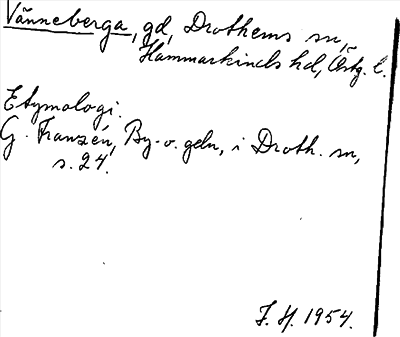 Vänneberga, gd, Drothems sn,
Hammarkinds hd, Östg. l.
Etymologi.
G. Franzén, By- o. geln, i Droth. sn,
s. 24.
J. H. 1954.